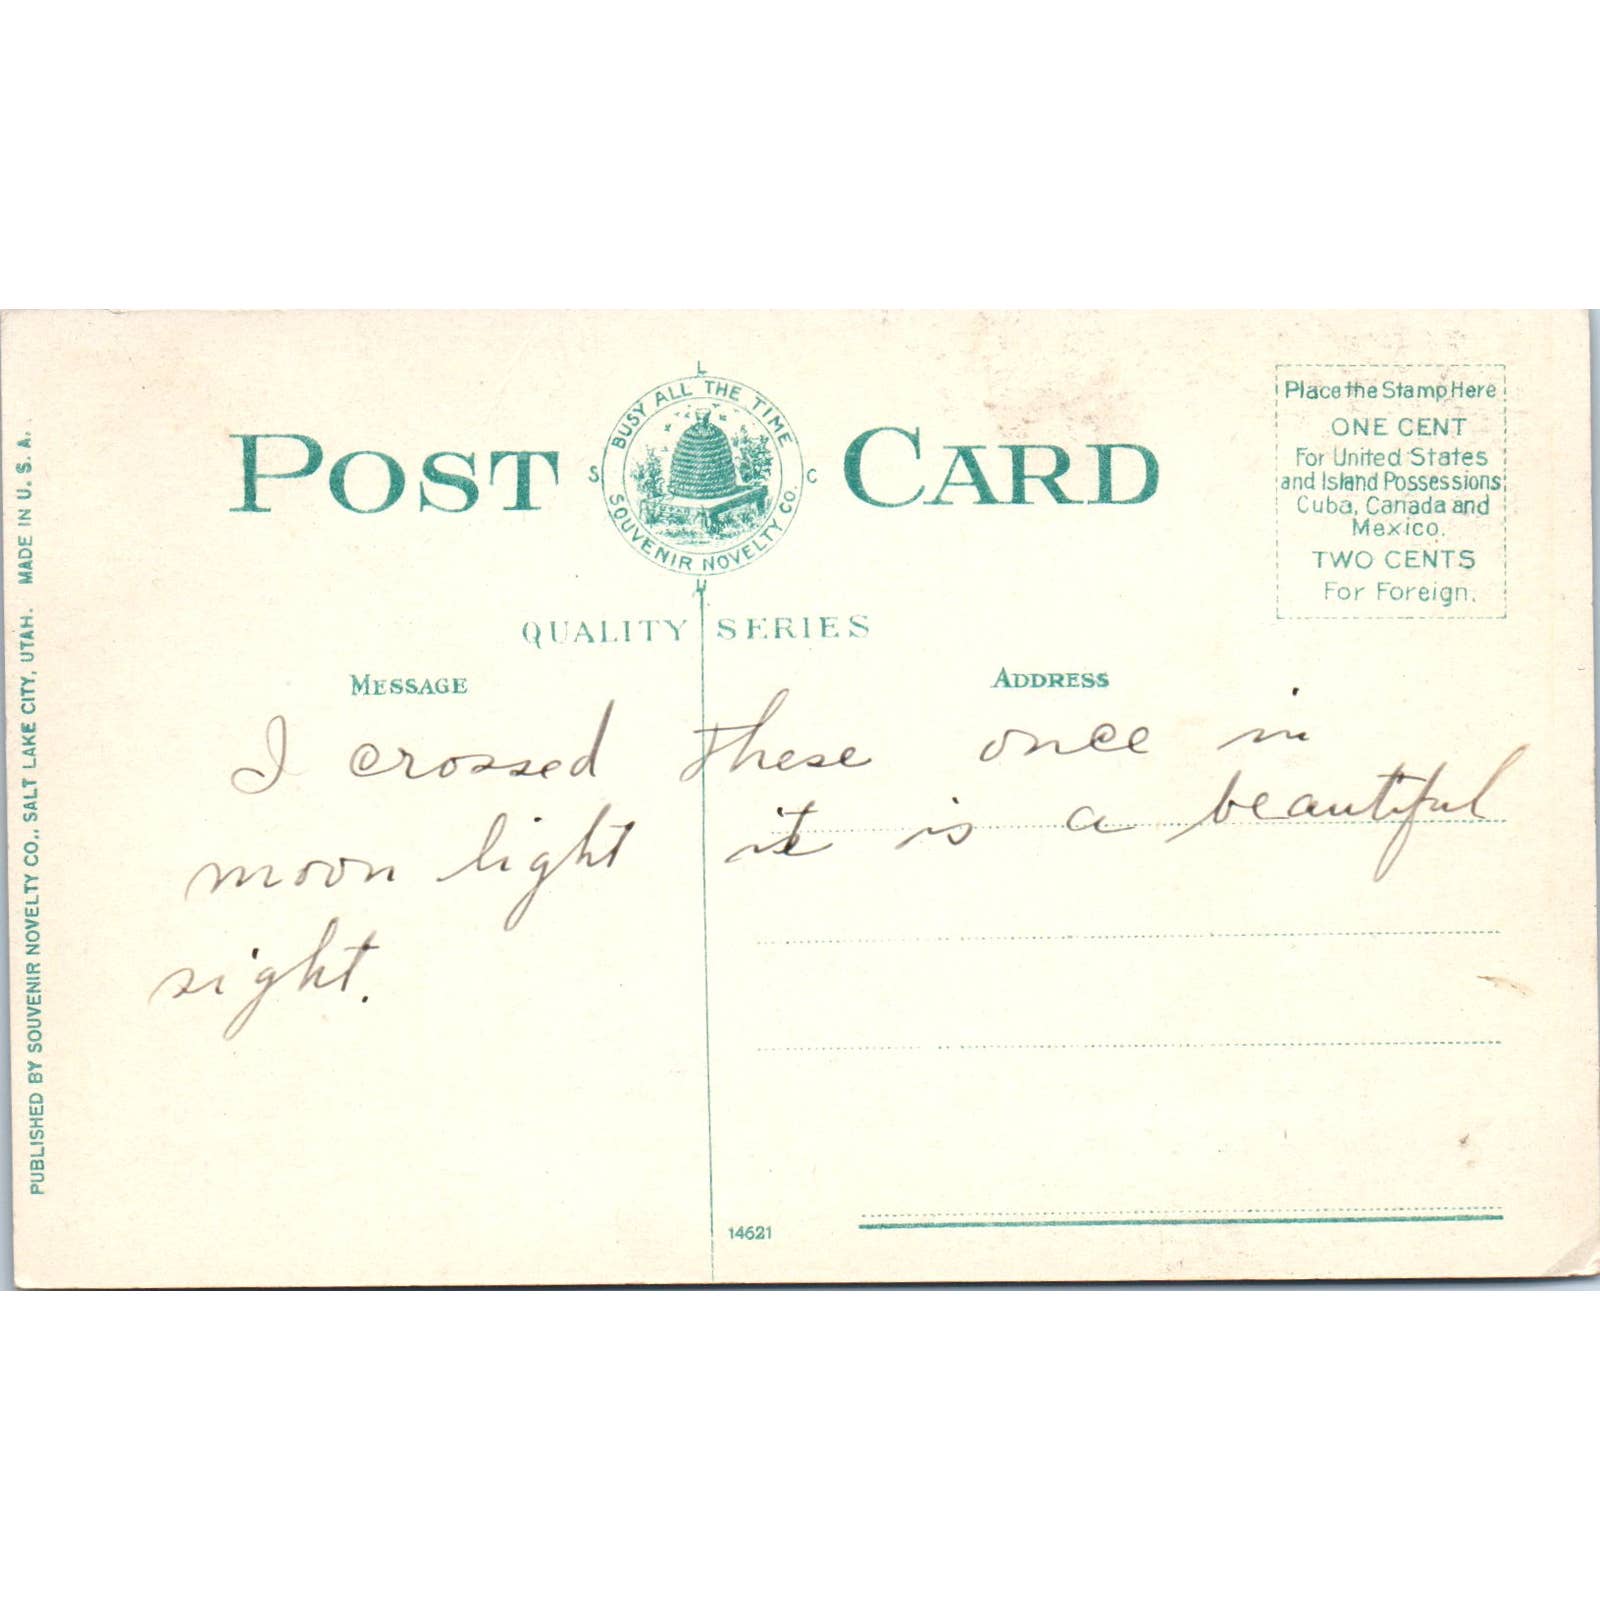 L
BUSY ALL THE TIME
S C
SOUVENIR NOVELTY CO.
U
POST CARD
QUALITY SERIES
Place the Stamp Here
ONE CENT
For United States
and Island Possessions
Cuba, Canada and
Mexico.
TWO CENTS
For Foreign.
MESSAGE
ADDRESS
I crossed these once in
moon light it is a beautiful
sight.
14621
PUBLISHED BY SOUVENIR NOVELTY CO., SALT LAKE CITY, UTAH. MADE IN U. S. A.